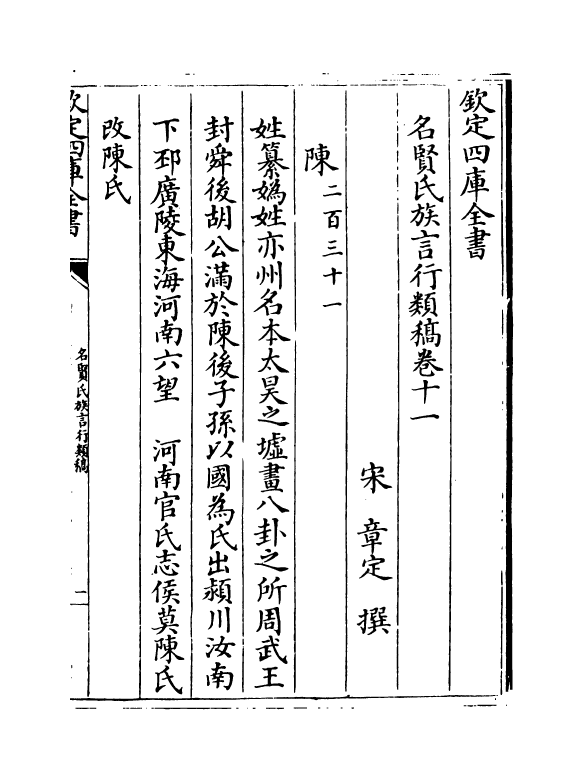 欽定四庫全書
名賢氏族言行類稿卷十一
宋 章定 撰
陳二百三十一
姓纂媯姓亦州名本太昊之墟畫八卦之所周武王
封舜後胡公滿於陳後子孫以國為氏出潁川汝南
下邳廣陵東海河南六望 河南官氏志侯莫陳氏
改陳氏
欽定四庫全書
名賢氏族言行類稿